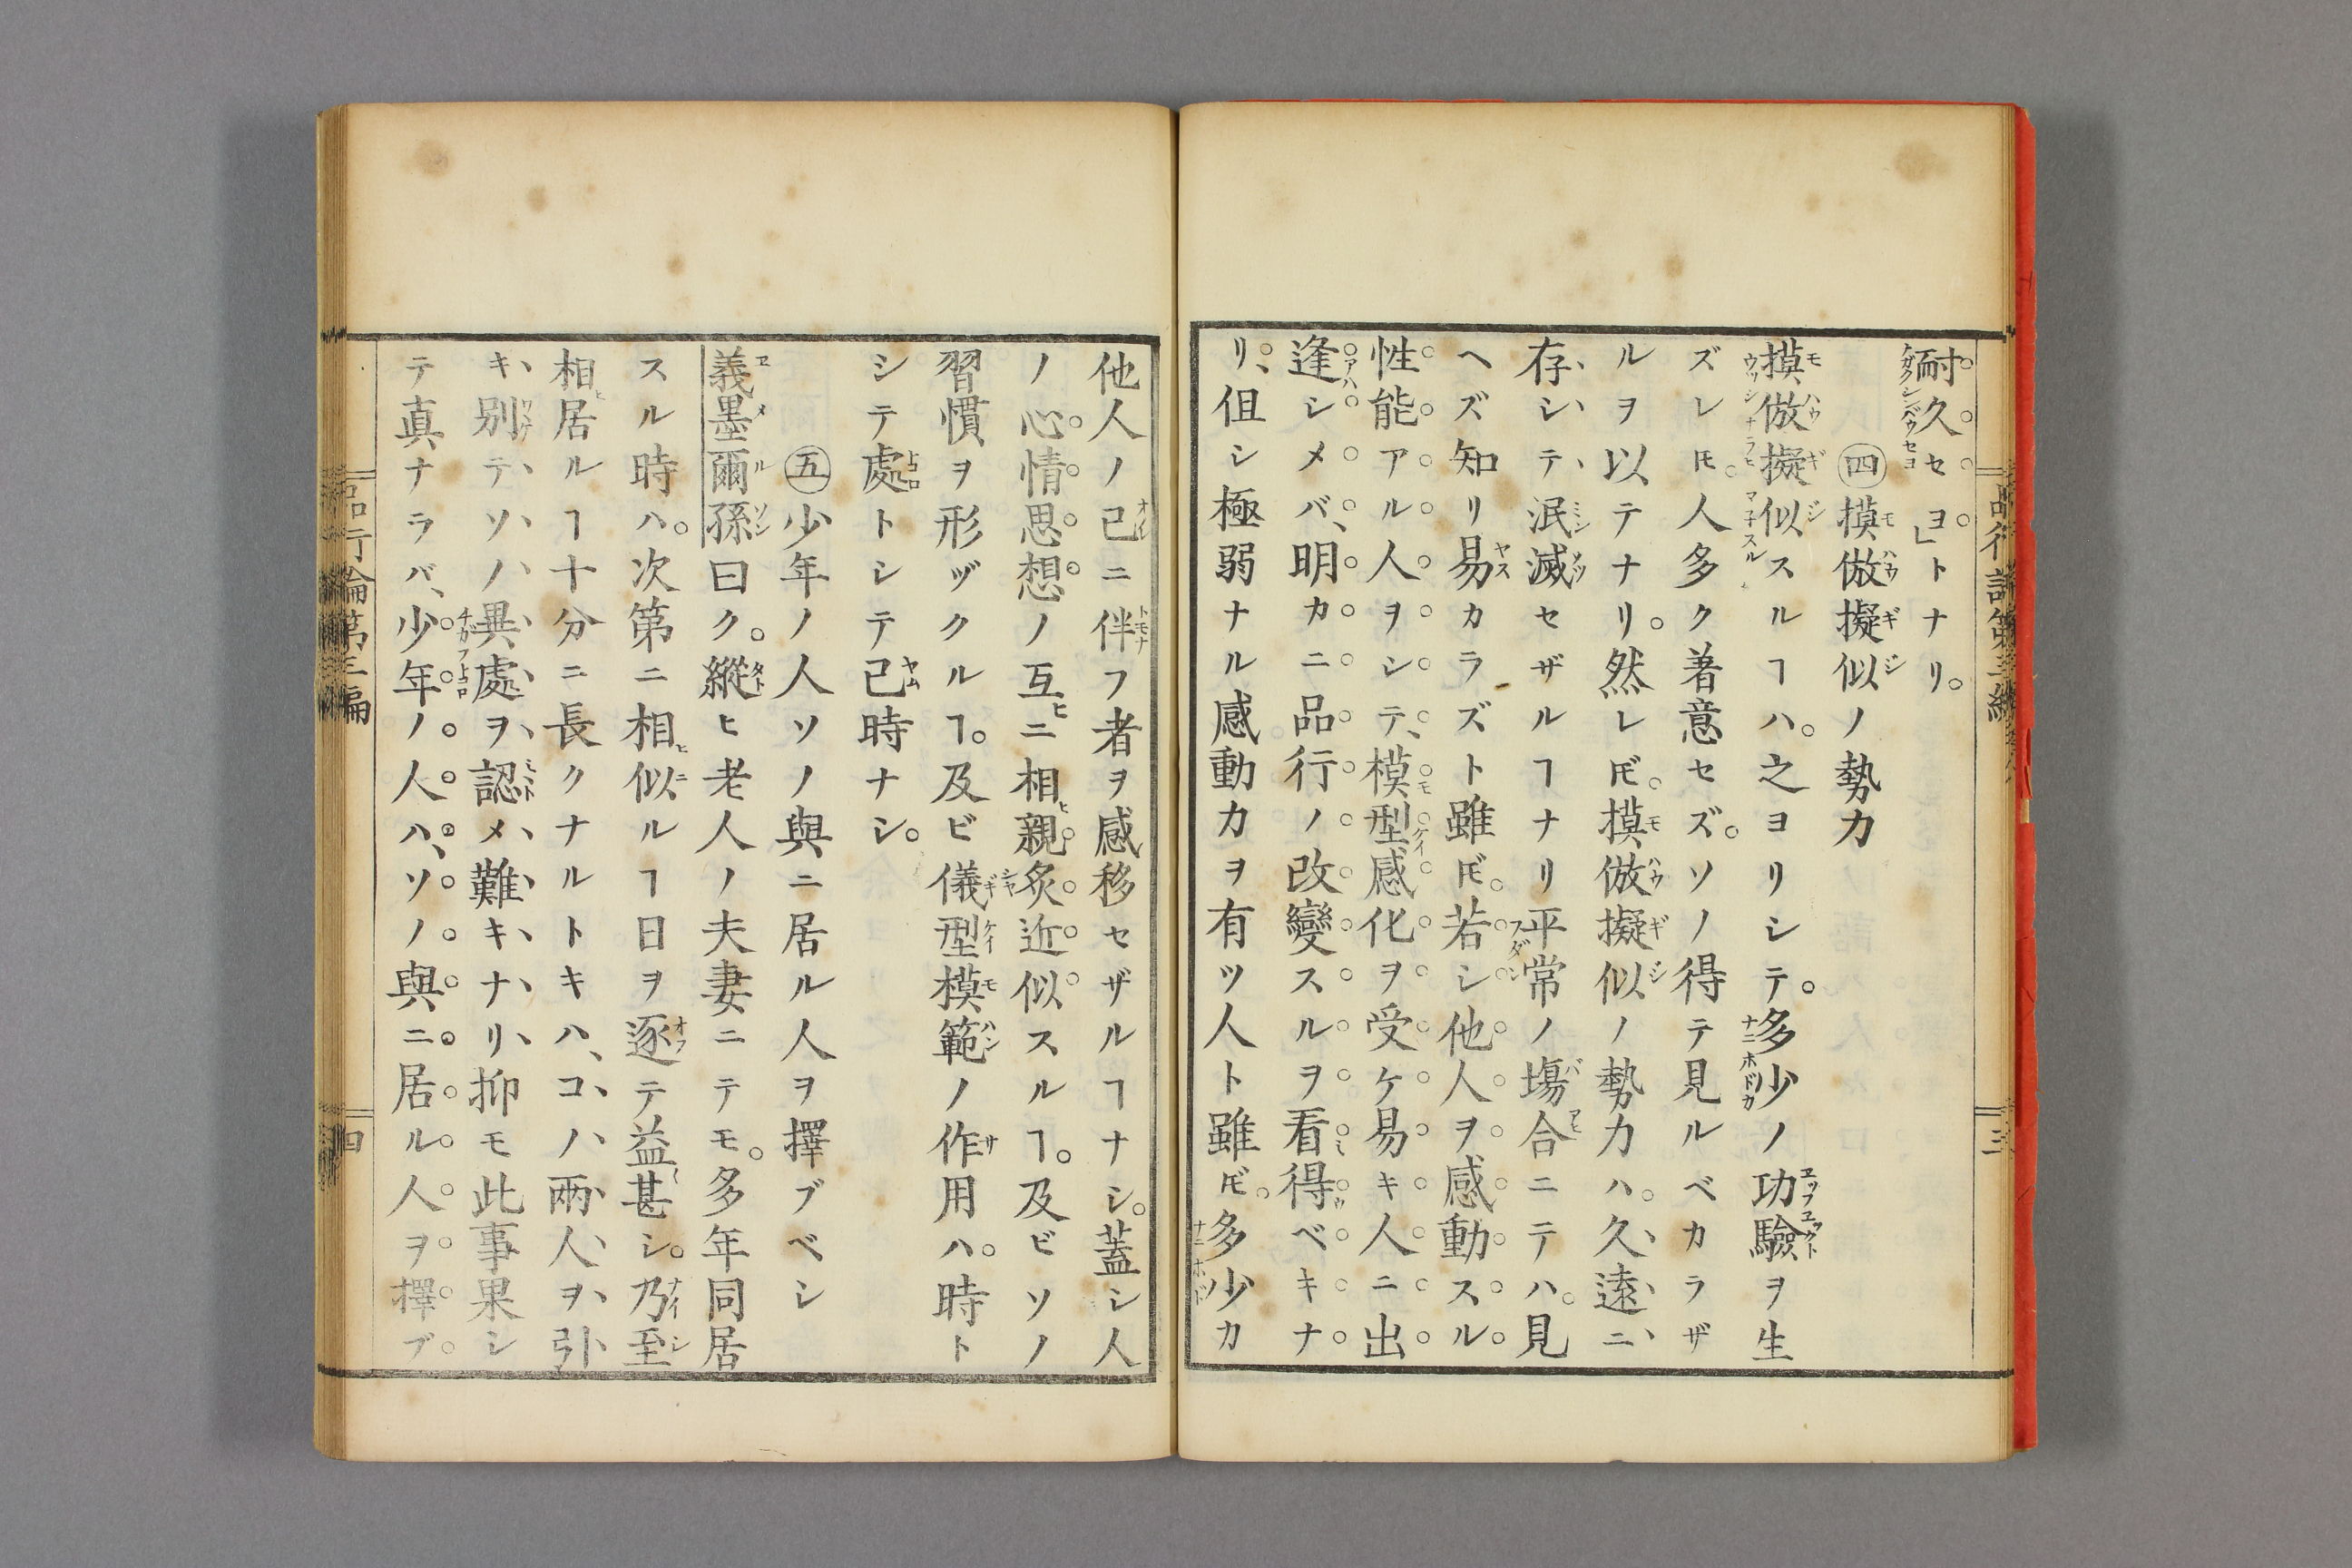 品行論第三編
三
耐久セヨ」トナリ。
㊃模倣擬似ノ勢力
摸倣擬似スルヿハ。之ヨリシテ。多少ノ功驗ヲ生
ズレ𪜈。人多ク著意セズ。ソノ得テ見ルベカラザ
ルヲ以テナリ。然レ𪜈。摸倣擬似ノ勢力ハ。久遠ニ
存シテ泯滅セザルヿナリ平常ノ塲合ニテハ。見
ヘズ知リ易カラズト雖𪜈。若シ他人ヲ感動スル
性能アル人ヲシテ、模型感化ヲ受ケ易キ人ニ出
逢シメバ、明カニ品行ノ改變スルヲ看得ベキナ
リ、但シ極弱ナル感動力ヲ有ツ人ト雖𪜈。多少カ
他人ノ己ニ伴フ者ヲ感移セザルヿナシ。蓋シ人
ノ心情思想ノ互ヒニ相ヒ親炙近似スルヿ。及ビソノ
習慣ヲ形ヅクルヿ。及ビ儀型模範ノ作用ハ。時ト
シテ處トシテ已時ナシ。
㊄少年ノ人ソノ與ニ居ル人ヲ擇ブベシ
義墨爾孫曰ク。縱ヒ老人ノ夫妻ニテモ。多年同居
スル時ハ。次第ニ相ヒ似ルヿ日ヲ逐テ益甚シ。乃至
相ヒ居ルヿ十分ニ長クナルトキハ、コノ兩人ヲ引
キ別テソノ異處ヲ認メ難キナリ、抑モ此事果シ
テ真ナラバ、少年ノ人ハ、ソノ與ニ居ル人ヲ擇ブ
品行論第三編
四